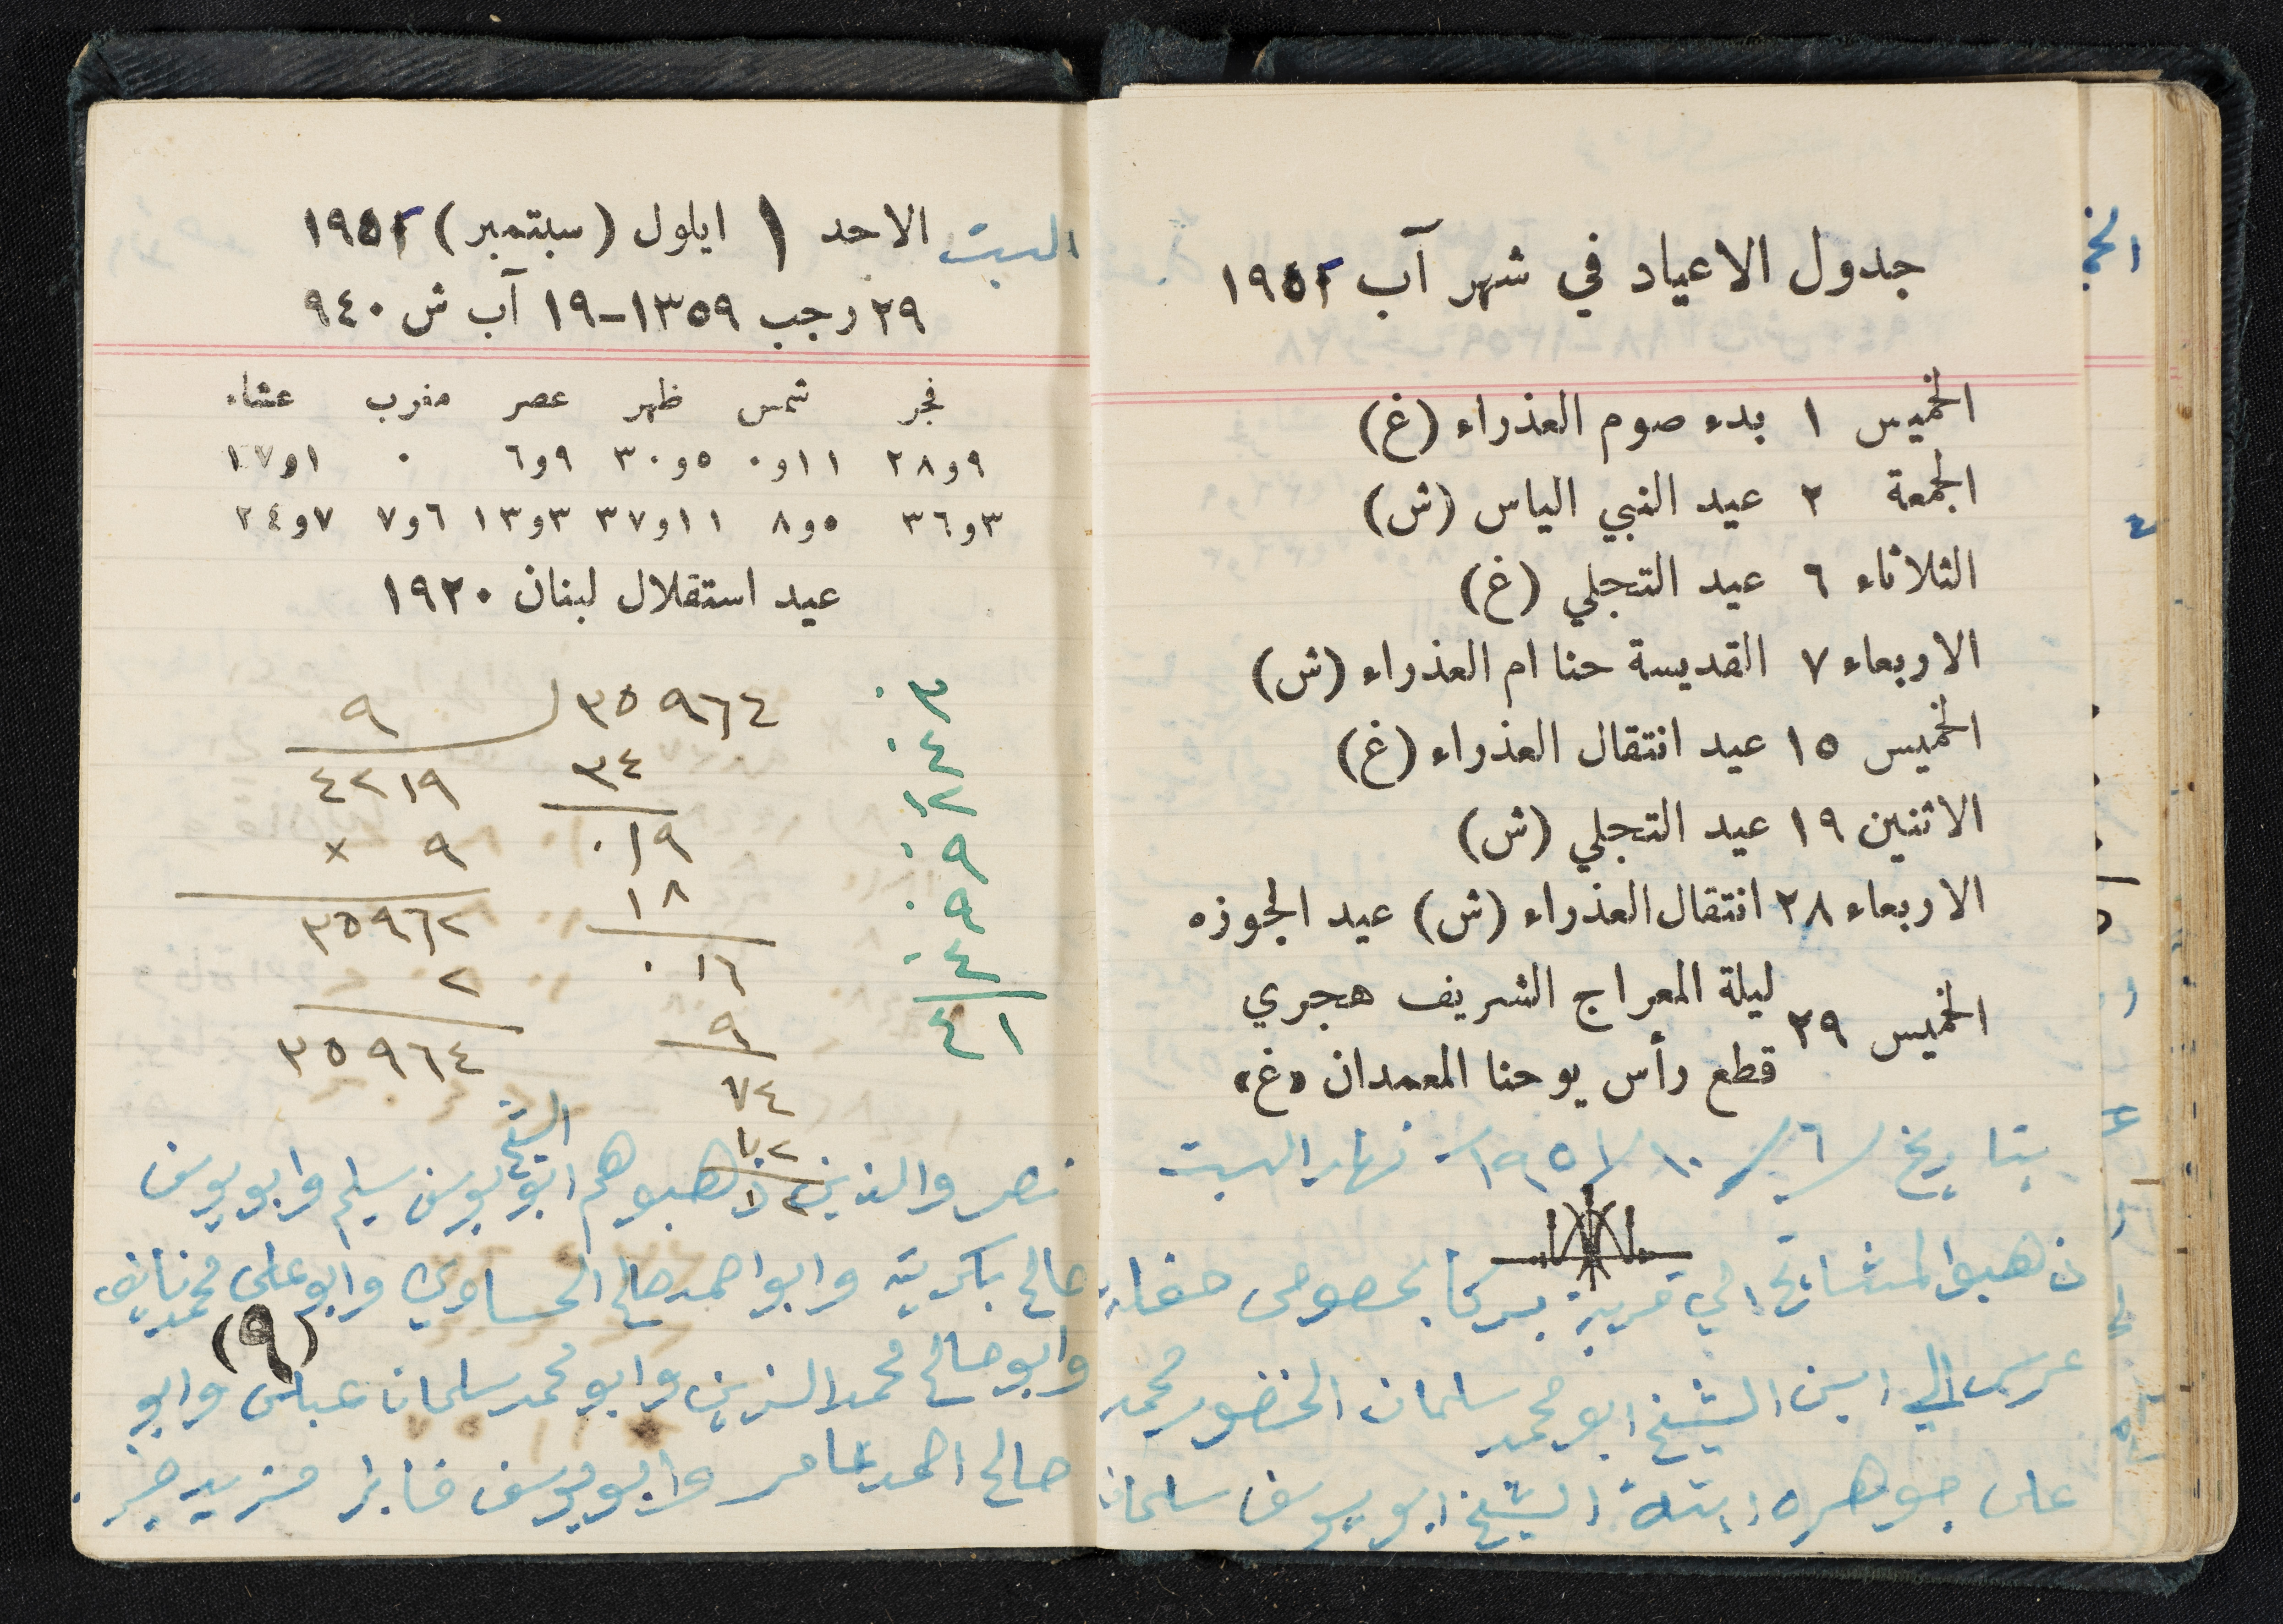 جدول الاعياد في شهر آب ١٩٥١
الخميس ١ بدء صوم العذراء (غ)
الجمعة ٢ عيد النبي الياس (ش)
الثلاثاء ٦ عيد التجلي (غ)
الاربعاء ٧ القديسة حنا ام العذراء (ش)
الخميس ١٥ عيد انتقال العذراء (غ)
الاثنين ١٩ عيد التجلي (ش)
الاربعاء ٢٨ انتقال العذراء (ش) عيد الجوزه
الخميس ٢٩ ليلة المعراج الشريف هجري
قطع رأس يوحنا المعمدان «غ»
بتاريخ ٦/١٠/١٩٥١ نهار السبت
ذهبوا المشايخ الي قرية يركا بخصوص حفلة
عرس الي ابن الشيخ ابو محمد سلمان الخضور محمد
على جوهره ابنة الشيخ ابو يوسف سلمان
السبت الاحد ١ ايلول (سبتمبر) ١٩٥١
٢٩ رجب ١٣٥٩-١٩ آب ش ٩٤٠
فجر شمس ظهر عصر مغرب عشاء
٩و٢٨ ١١و٠ ٥و٣٠ ٩و٦ ٠ ١و١٧
٣و٣٦ ٥و٨ ١١و٣٧ ٣و١٣ ٦و٧ ٧و٢٤
عيد استقلال لبنان ١٩٢٠
٣٥٩٦٤ ٩
٣٤ ٤٢١٩
٠١٩ ٩ ×
١٨ ٣٥٩٦٢
٠١٦ ٢
٩ ٣٥٩٦٤
٧٤
٣٠
٤٠
١٢
٩٠
٩٠
٤٠
٤١
الشيخ
نصر والذين ذهبوا هم ابو يوسف سليم وابو يوسف
صالح بكرية وابو احمد صالح الحساوي وابو على محمد نايف
(٩)
وابو صالح محمد الزين وابو محمد سلمان عباس وابو
صالح احمد عامر وابو يوسف فايز مزيد خير